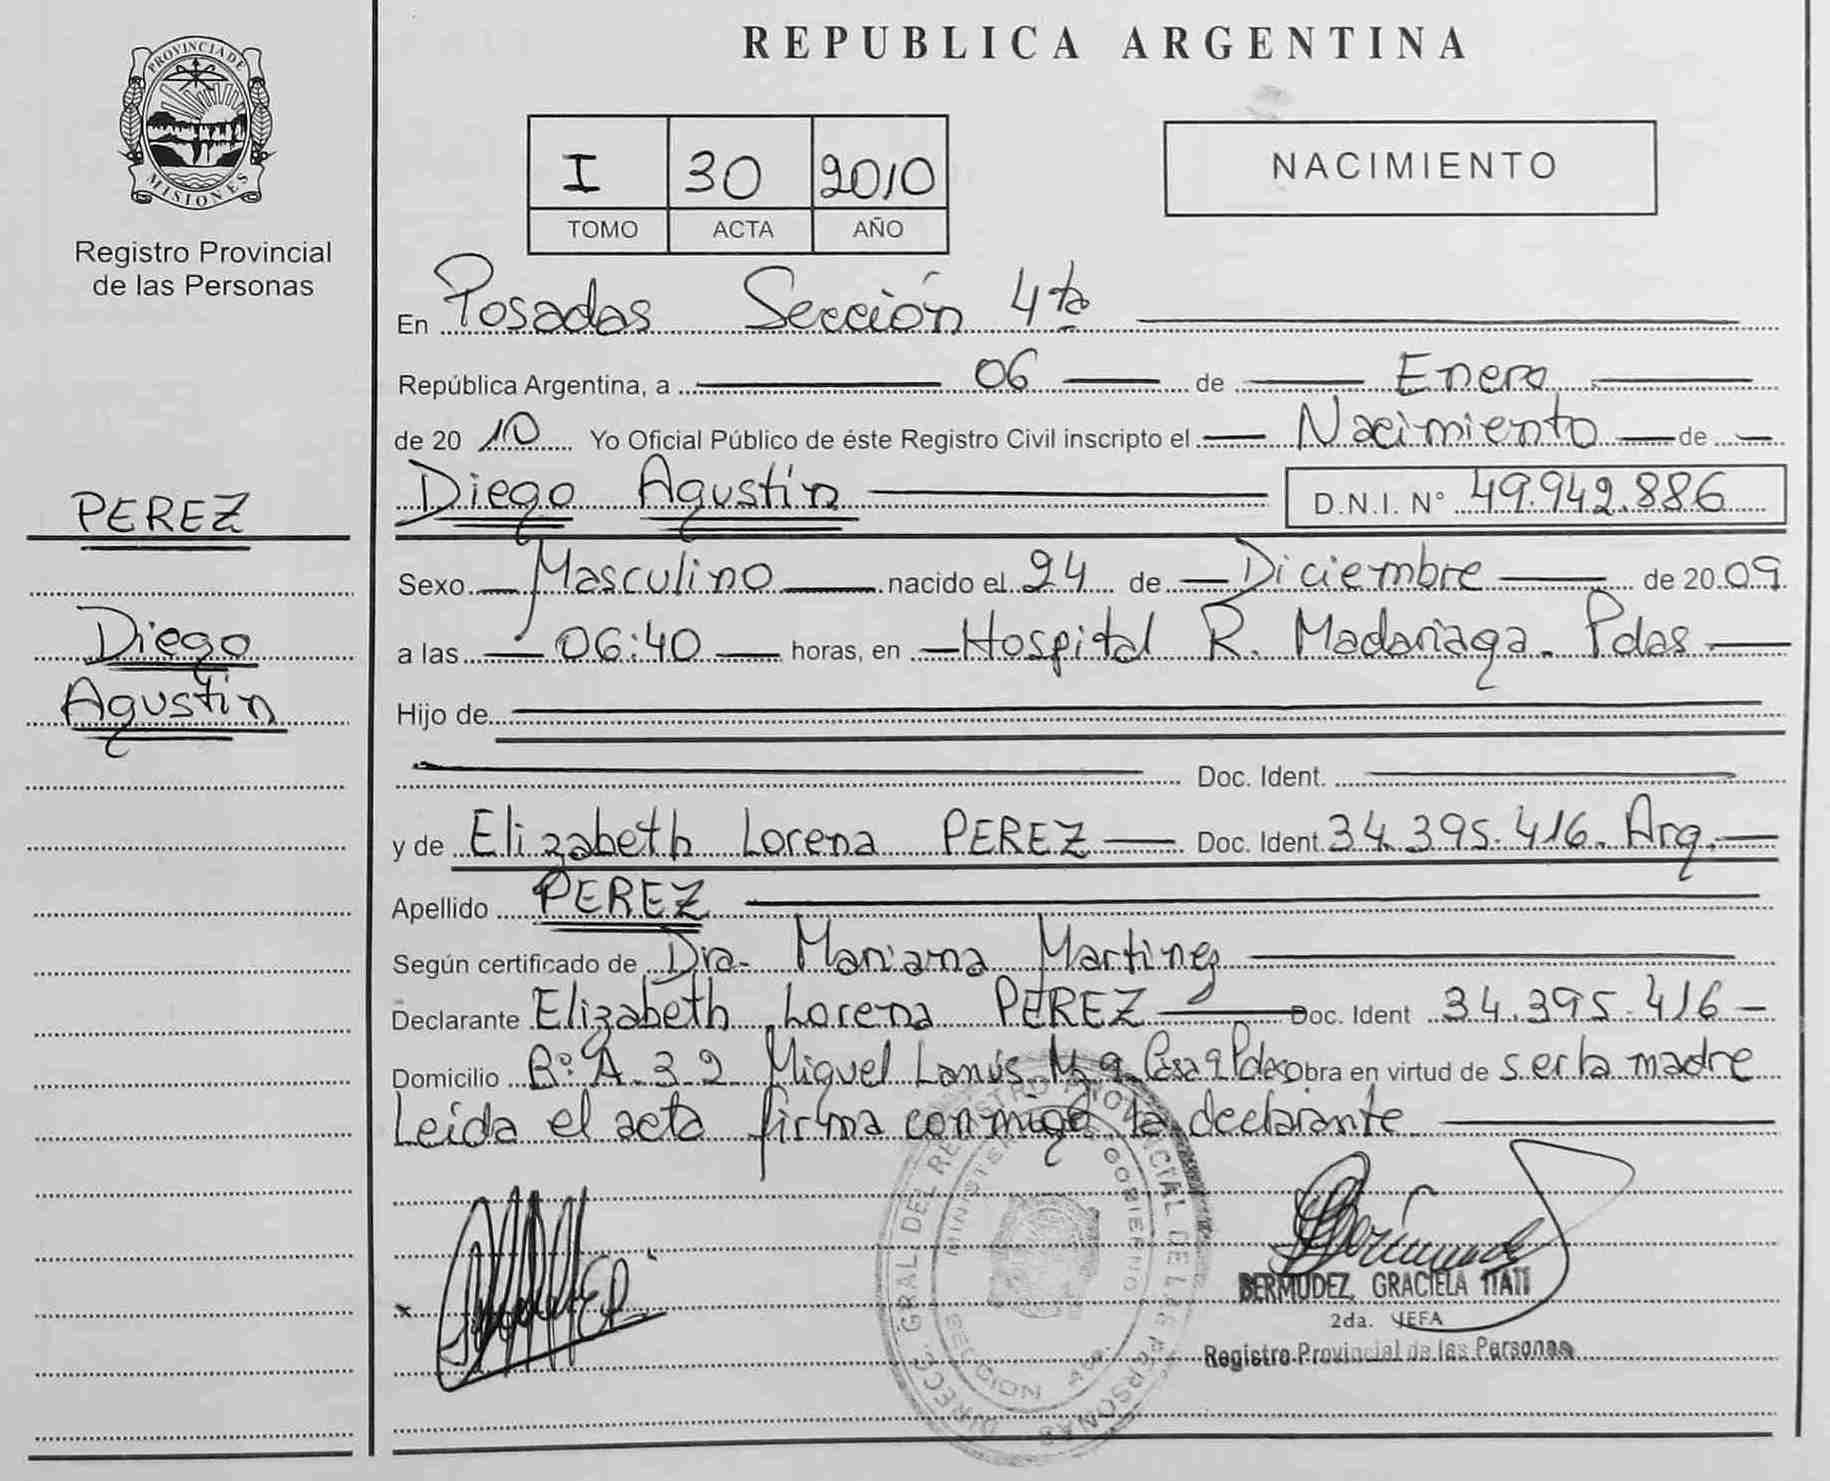 REPUBLICA ARGENTINA
PROVINCIA DE
MISIONES
Registro Provincial
de las Personas
I 30 2010
TOMO ACTA AÑO
NACIMIENTO
En Posadas Sección 4ta
República Argentina, a 06 de Enero
de 2010 Yo Oficial Público de éste Registro Civil inscripto el Nacimiento de
Diego Agustín D.N.I. N° 49.942.886
PEREZ
Diego
Agustín
Sexo Masculino nacido el 24 de Diciembre de 2009
a las 06:40 horas, en Hospital R. Madariaga. Pdas
Hijo de
Doc. Ident.
y de Elizabeth Lorena PEREZ Doc. Ident. 34.395.416. Arg.
Apellido PEREZ
Según certificado de Dra. Mariana Martinez
Declarante Elizabeth Lorena PEREZ Doc. Ident 34.395.416
Domicilio B° A.3.2. Miguel Lanús Mz 9 Casa 9 Pdas Obra en virtud de ser la madre
Leída el acta firma conmigo la declarante
DIRECC. GRAL. DEL REGISTRO PROVINCIAL DE LAS PERSONAS
MINISTERIO GOBIERNO
SECCION 4ta.
BERMUDEZ, GRACIELA ITATI
2da. JEFA
Registro Provincial de las Personas